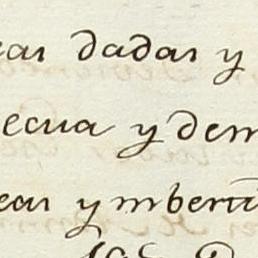 eas dadas y
ecua y dem
eas ymberti